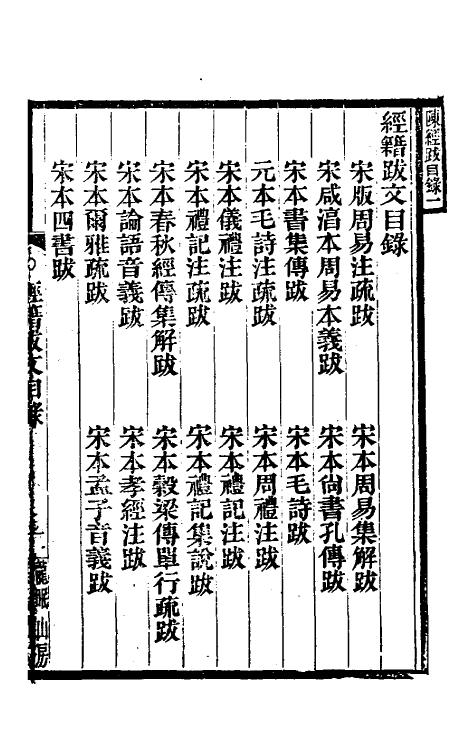 陳經跋目錄一
經籍跋文目錄
宋版周易注疏跋　宋本周易集解跋
宋咸淳本周易本義跋　宋本尙書孔傳跋
宋本書集傳跋　宋本毛詩跋
元本毛詩注疏跋　宋本周禮注跋
宋本儀禮注跋　宋本禮記注跋
宋本禮記注疏跋　宋本禮記集說跋
宋本春秋經傳集解跋　宋本穀梁傳單行疏跋
宋本論語音義跋　宋本孝經注跋
宋本爾雅疏跋　宋本孟子音義跋
宋本四書跋
經籍跋文目錄